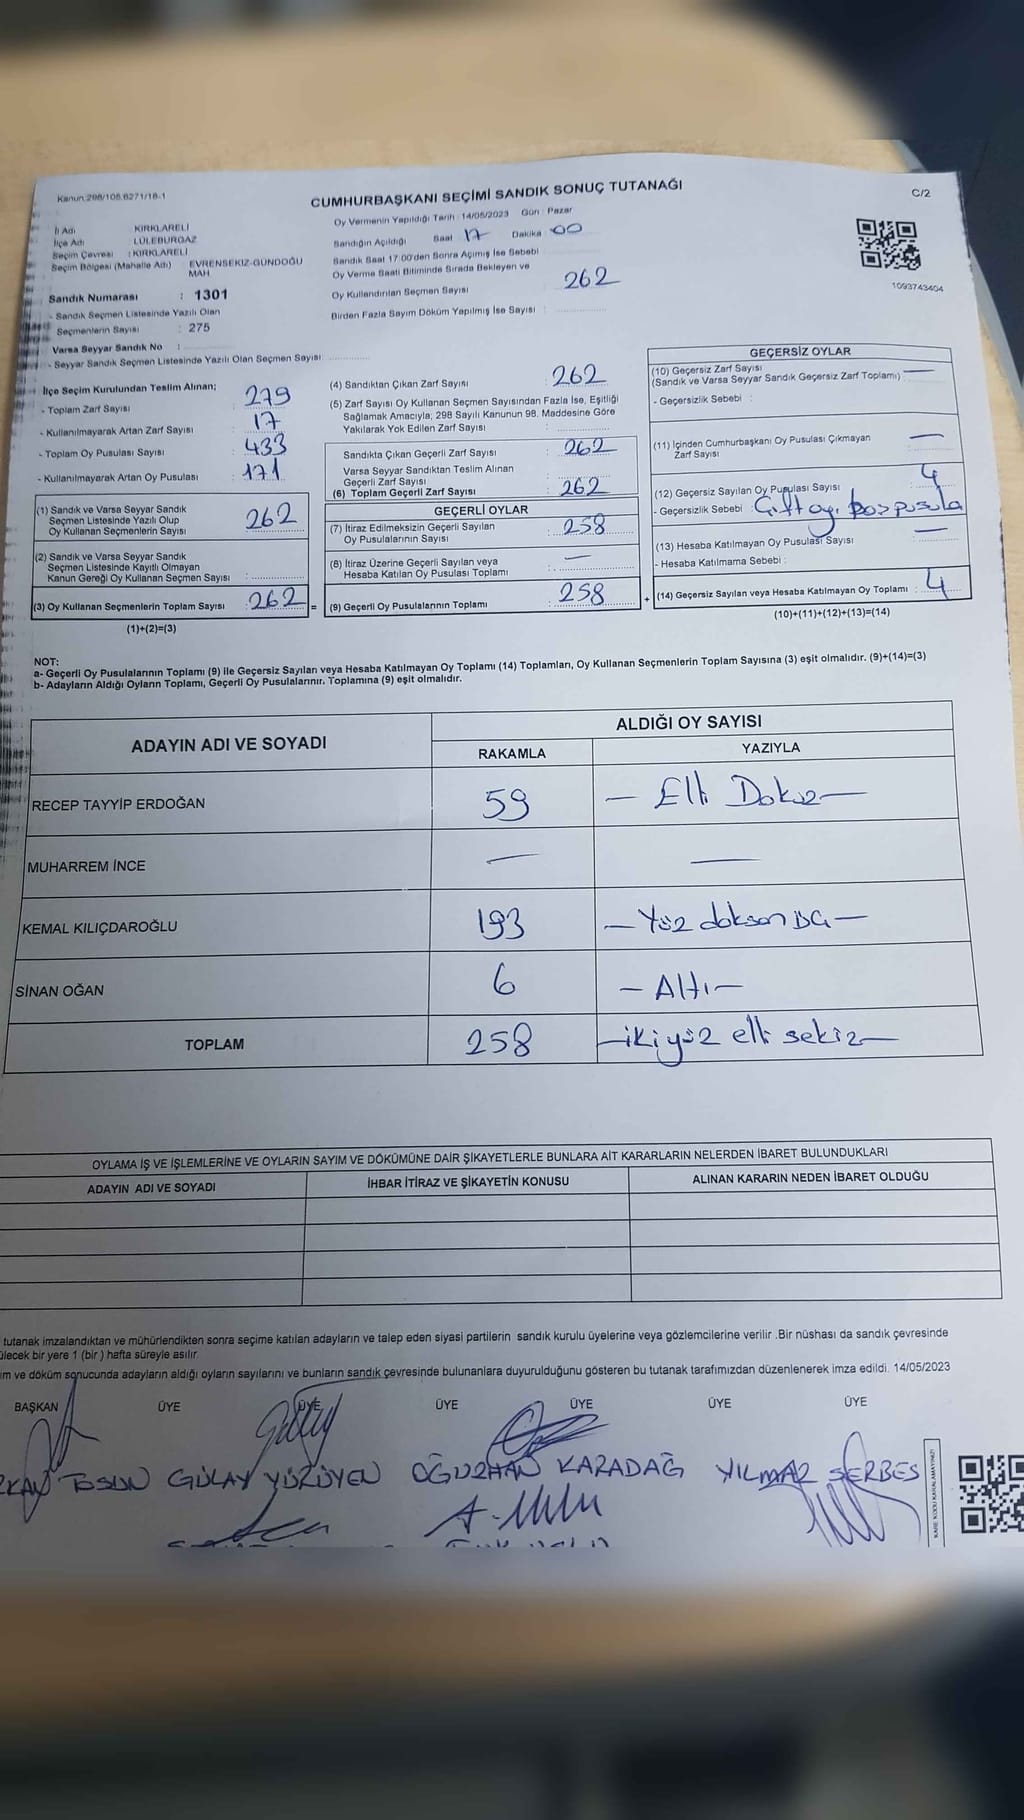 Kanun:298/105.6271/18-1
CUMHURBAŞKANI SEÇİMİ SANDIK SONUÇ TUTANAĞI
C/2
İl Adı KIRKLARELİ
İlçe Adı LÜLEBURGAZ
Seçim Çevresi : KIRKLARELİ
Seçim Bölgesi (Mahalle Adı) EVRENSEKİZ-GÜNDOĞU
MAH
Sandık Numarası : 1301
- Sandık Seçmen Listesinde Yazılı Olan
Seçmenlerin Sayısı : 275
Varsa Seyyar Sandık No :
- Seyyar Sandık Seçmen Listesinde Yazılı Olan Seçmen Sayısı:
Oy Vermenin Yapıldığı Tarih : 14/05/2023 Gün : Pazar
Sandığın Açıldığı Saat 17 Dakika 00
Sandık Saat 17:00'den Sonra Açımış İse Sebebi
Oy Verme Saati Bitiminde Sırada Bekleyen ve
Oy Kullandırılan Seçmen Sayısı : 262
Birden Fazla Sayım Döküm Yapılmış İse Sayısı :
1093743404
İlçe Seçim Kurulundan Teslim Alınan;
- Toplam Zarf Sayısı : 279
- Kullanılmayarak Artan Zarf Sayısı : 17
- Toplam Oy Pusulası Sayısı : 433
- Kullanılmayarak Artan Oy Pusulası : 171
(1) Sandık ve Varsa Seyyar Sandık
Seçmen Listesinde Yazılı Olup
Oy Kullanan Seçmenlerin Sayısı : 262
(2) Sandık ve Varsa Seyyar Sandık
Seçmen Listesinde Kayıtlı Olmayan
Kanun Gereği Oy Kullanan Seçmen Sayısı :
(3) Oy Kullanan Seçmenlerin Toplam Sayısı : 262 =
(1)+(2)=(3)
(4) Sandıktan Çıkan Zarf Sayısı : 262
(5) Zarf Sayısı Oy Kullanan Seçmen Sayısından Fazla İse, Eşitliği
Sağlamak Amacıyla; 298 Sayılı Kanunun 98. Maddesine Göre
Yakılarak Yok Edilen Zarf Sayısı :
Sandıkta Çıkan Geçerli Zarf Sayısı : 262
Varsa Seyyar Sandıktan Teslim Alınan
Geçerli Zarf Sayısı :
(6) Toplam Geçerli Zarf Sayısı : 262
GEÇERLİ OYLAR
(7) İtiraz Edilmeksizin Geçerli Sayılan
Oy Pusulalarının Sayısı : 258
(8) İtiraz Üzerine Geçerli Sayılan veya
Hesaba Katılan Oy Pusulası Toplamı : —
(9) Geçerli Oy Pusulalarının Toplamı : 258 +
GEÇERSİZ OYLAR
(10) Geçersiz Zarf Sayısı
(Sandık ve Varsa Seyyar Sandık Geçersiz Zarf Toplamı) : —
- Geçersizlik Sebebi :
(11) İçinden Cumhurbaşkanı Oy Pusulası Çıkmayan
Zarf Sayısı —
(12) Geçersiz Sayılan Oy Pusulası Sayısı : 4
- Geçersizlik Sebebi : Çift oy, boş pusula
(13) Hesaba Katılmayan Oy Pusulası Sayısı : —
- Hesaba Katılmama Sebebi :
(14) Geçersiz Sayılan veya Hesaba Katılmayan Oy Toplamı : 4
(10)+(11)+(12)+(13)=(14)
NOT:
a- Geçerli Oy Pusulalarının Toplamı (9) ile Geçersiz Sayılan veya Hesaba Katılmayan Oy Toplamı (14) Toplamları, Oy Kullanan Seçmenlerin Toplam Sayısına (3) eşit olmalıdır. (9)+(14)=(3)
b- Adayların Aldığı Oyların Toplamı, Geçerli Oy Pusulalarının Toplamına (9) eşit olmalıdır.
ADAYIN ADI VE SOYADI ALDIĞI OY SAYISI
RAKAMLA YAZIYLA
RECEP TAYYİP ERDOĞAN 59 — Elli Dokuz —
MUHARREM İNCE — —
KEMAL KILIÇDAROĞLU 193 — Yüz doksan üç —
SİNAN OĞAN 6 — Altı —
TOPLAM 258 — iki yüz elli sekiz —
OYLAMA İŞ VE İŞLEMLERİNE VE OYLARIN SAYIM VE DÖKÜMÜNE DAİR ŞİKAYETLERLE BUNLARA AİT KARARLARIN NELERDEN İBARET BULUNDUKLARI
ADAYIN ADI VE SOYADI İHBAR İTİRAZ VE ŞİKAYETİN KONUSU ALINAN KARARIN NEDEN İBARET OLDUĞU
tutanak imzalandıktan ve mühürlendikten sonra seçime katılan adayların ve talep eden siyasi partilerin sandık kurulu üyelerine veya gözlemcilerine verilir .Bir nüshası da sandık çevresinde
ülecek bir yere 1 (bir ) hafta süreyle asılır
ım ve döküm sonucunda adayların aldığı oyların sayılarını ve bunların sandık çevresinde bulunanlara duyurulduğunu gösteren bu tutanak tarafımızdan düzenlenerek imza edildi. 14/05/2023
BAŞKAN ÜYE ÜYE ÜYE ÜYE ÜYE ÜYE
TOSUN GÜLAY YÜRÜYEN OĞUZHAN KARADAĞ YILMAZ SERBES
KARE KODU KARALAMAYINIZ!